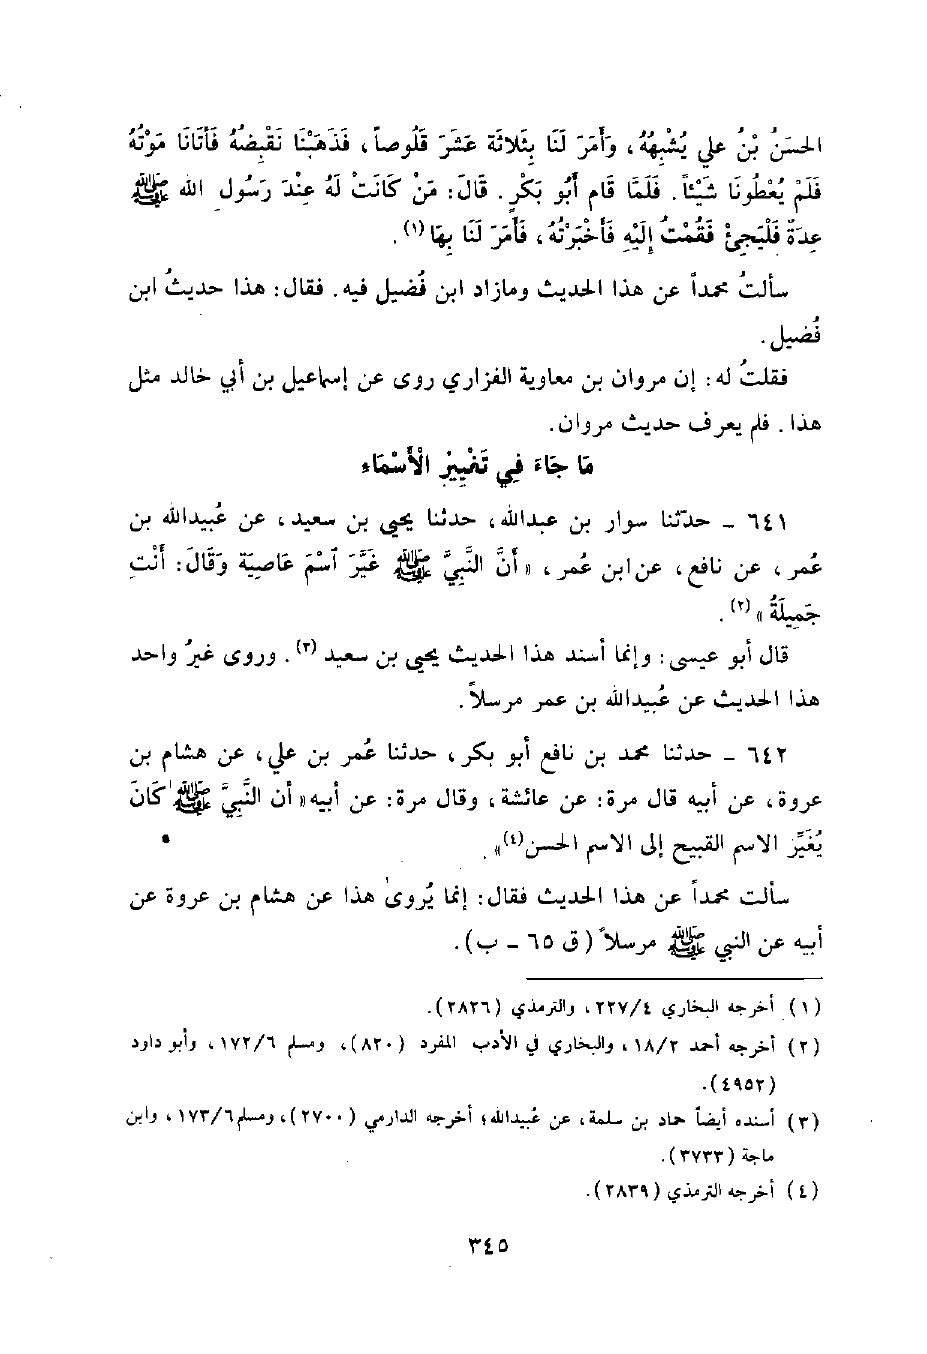 الحَسَنُ بْنُ علي يُشْبِهُهُ، وَأَمَرَ لَنَا بِثَلاثَة عَشَرَ قَلُوصاً، فَذَهَبْنَا نَقْبِضُهُ فَأَتَانَا مَوْتُهُ
فَلَمْ يُعْطُونَا شَيْئاً. فَلَمَّا قَام أَبُو بَكْرٍ. قَالَ: مَنْ كَانَتْ لَهُ عِنْدَ رَسُولِ الله ﷺ
عِدَةٌ فَلْيَجِئْ فَقُمْتُ إِلَيْهِ فَأَخْبَرْتُهُ، فَأَمَرَ لَنَا بِهَا(١).
سألتُ محمداً عن هذا الحديث ومازاد ابن فُضيل فيه. فقال: هذا حديثُ ابن
فُضيل.
فقلتُ له: إن مروان بن معاوية الفزاري روى عن إسماعيل بن أبي خالد مثل
هذا. فلم يعرف حديث مروان.
مَا جَاءَ فِي تَغْيِيرْ الْأَسْمَاء
٦٤١ – حدثنا سوار بن عبدالله، حدثنا يحيى بن سعيد، عن عُبيدالله بن
عُمر، عن نافع، عن ابن عمر، «أَنَّ النَّبِيَّ ﷺ غَيَّرَ آسْمَ عَاصِيَة وَقَالَ: أَنْتِ
جَمِيلَةُ»(٢).
قال أبو عيسى: وإنما أسند هذا الحديث يحيى بن سعيد(٣). وروى غيرُ واحد
هذا الحديث عن عُبيدالله بن عمر مرسلاً.
٦٤٢ – حدثنا محمد بن نافع أبو بكر، حدثنا عُمر بن علي، عن هشام بن
عروة، عن أبيه قال مرة: عن عائشة، وقال مرة: عن أبيه «أن النَّبِيَّ ﷺ كَانَ
يُغَيِّر الاسم القبيح إلى الاسم الحسن(٤)».
سألت محمداً عن هذا الحديث فقال: إنما يُروىٰ هذا عن هشام بن عروة عن
أبيه عن النبي ﷺ مرسلاً (ق ٦٥ – ب).
(١) أخرجه البخاري ٢٢٧/٤، والترمذي (٢٨٢٦).
(٢) أخرجه أحمد ١٨/٢، والبخاري في الأدب المفرد (٨٢٠)، ومسلم ١٧٢/٦، وأبو داود
(٤٩٥٢).
(٣) أسنده أيضاً حماد بن سلمة، عن عُبيدالله؛ أخرجه الدارمي (٢٧٠٠)، ومسلم ١٧٣/٦، وابن
ماجة (٣٧٣٣).
(٤) أخرجه الترمذي (٢٨٣٩).
٣٤٥